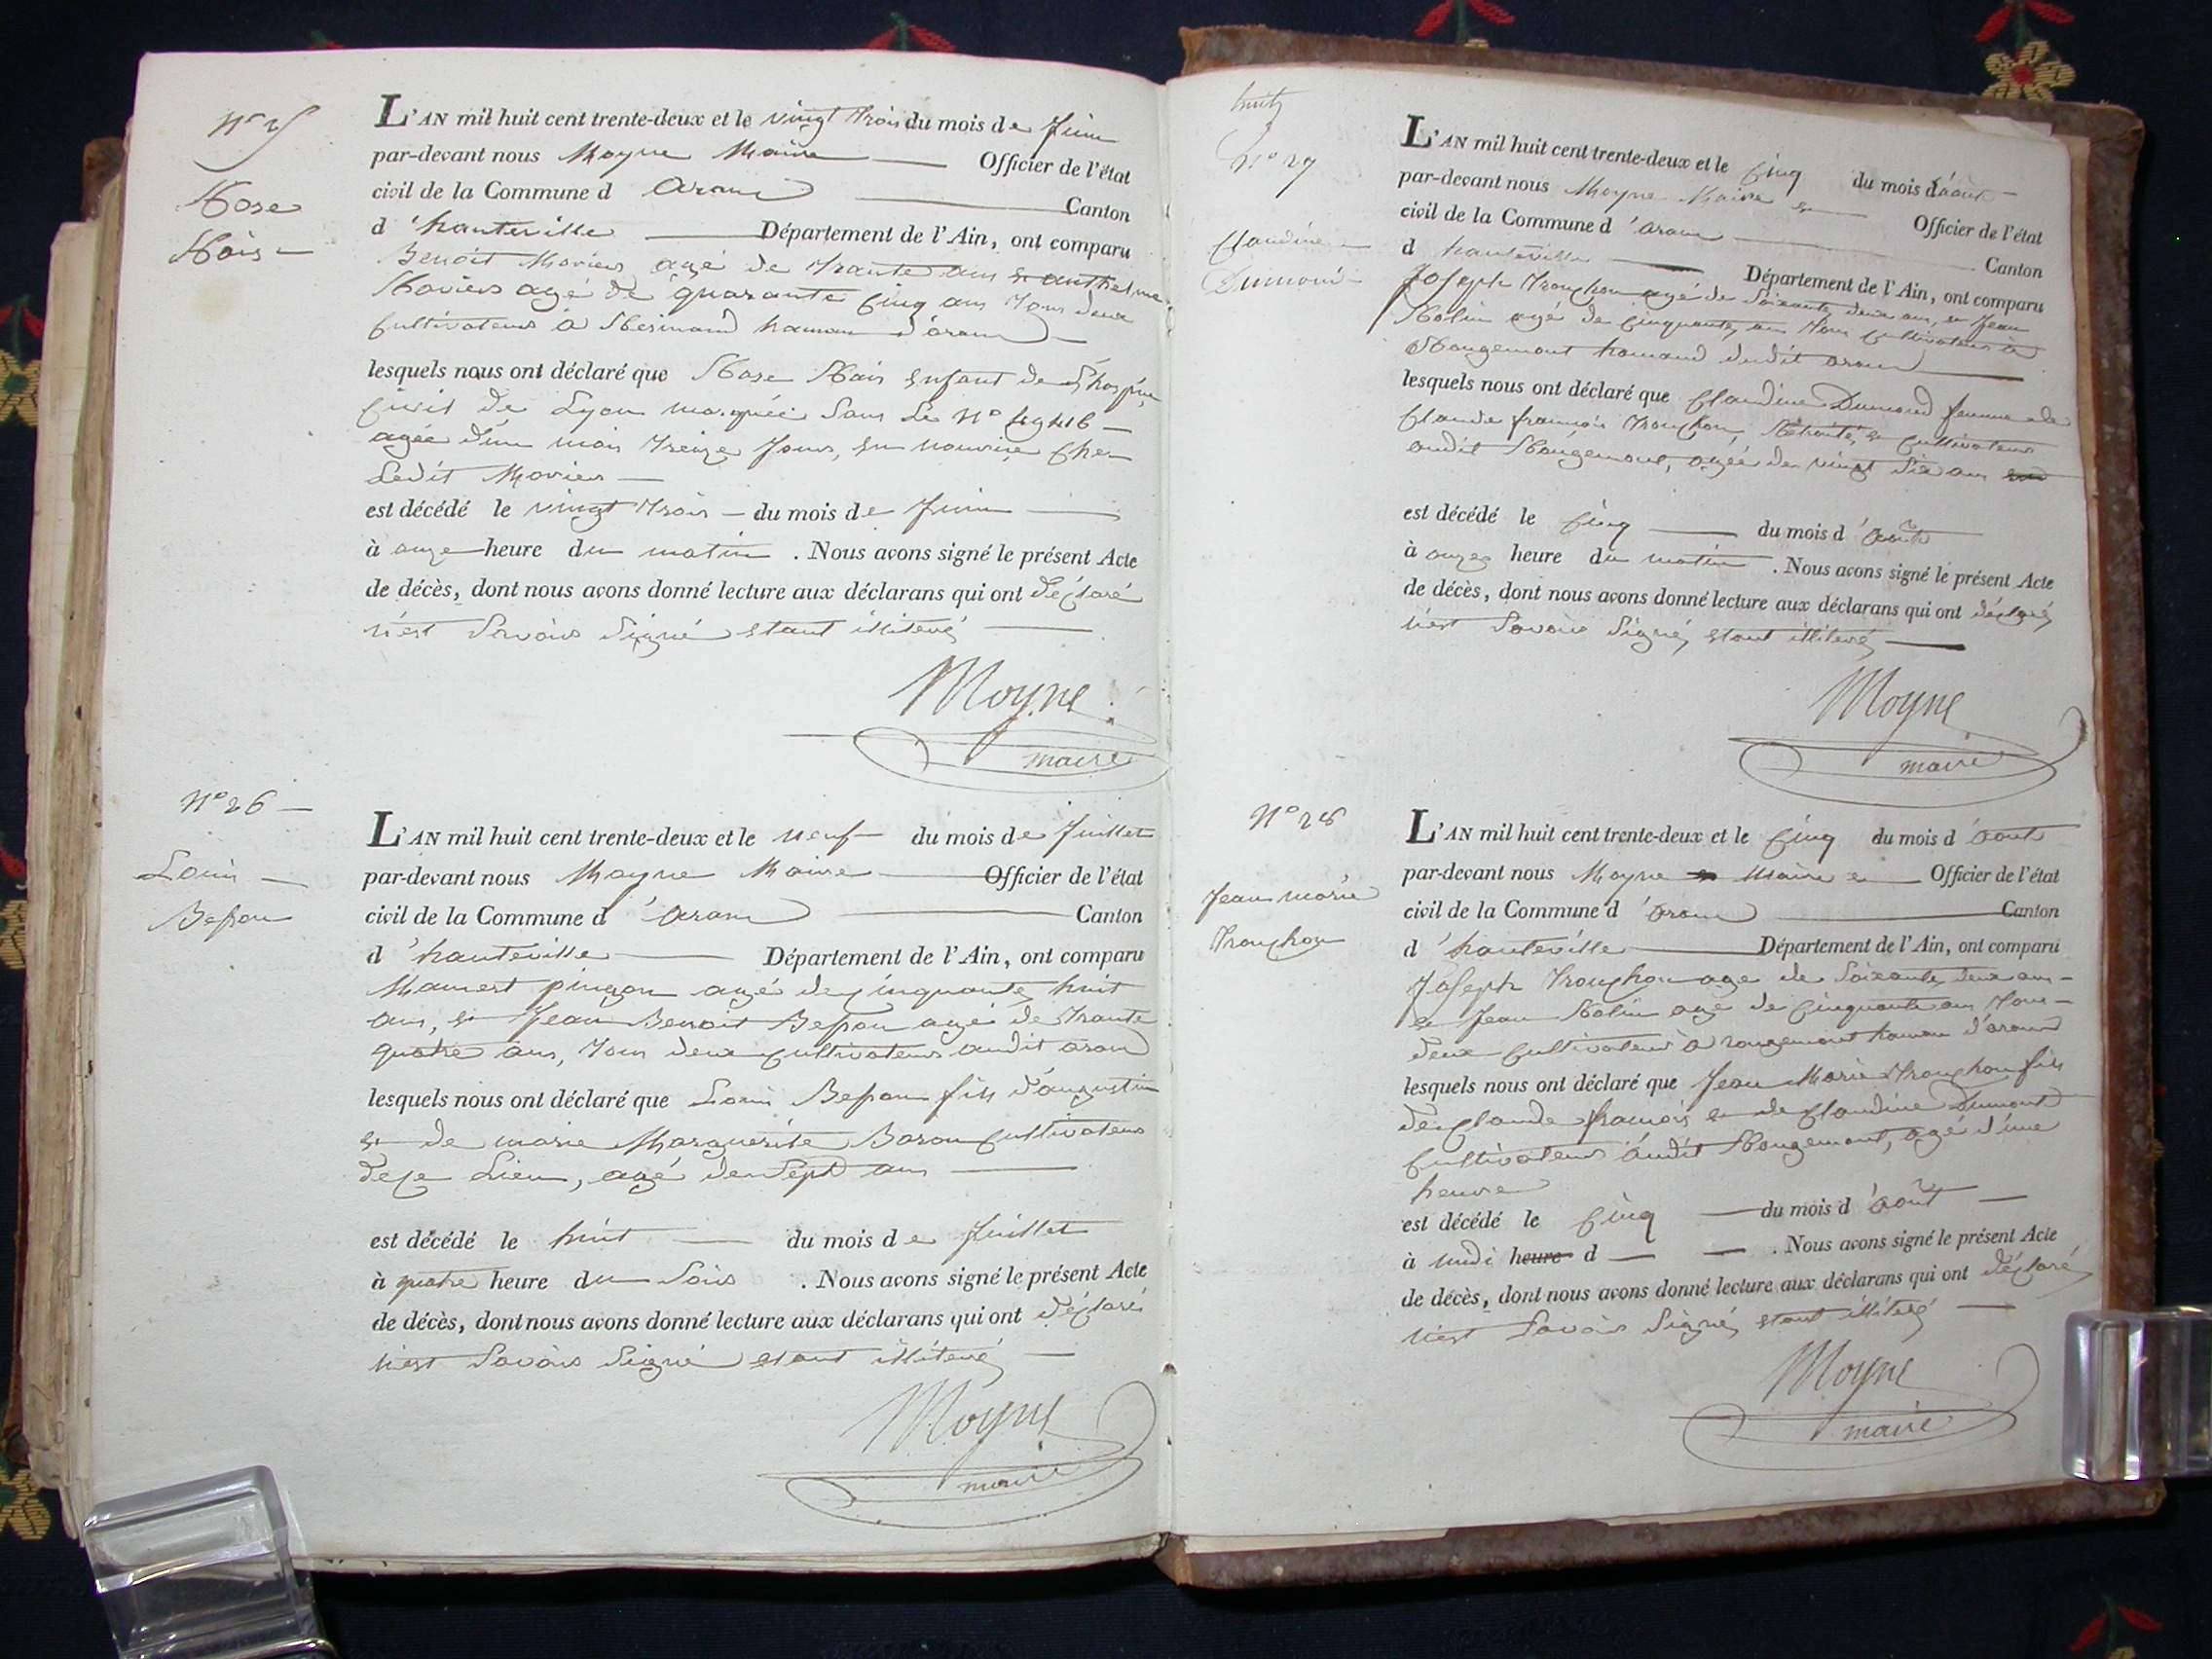 N° 25
Rose
L'AN mil huit cent trente-deux et le vingt trois du mois de Juin
par-devant nous Moyne Maire Officier de l'état
civil de la Commune d aranc
Canton
d'hauteville Département de l'Ain, ont comparu
Benoit Moriers agé de trante ans et anthelme
agé de quarante cinq ans tous deux
cultivateurs à haman d'aranc
lesquels nous ont déclaré que Rose enfant de L'hospice
civil de Lyon marquée sous le N°
agée d'un mois treize Jours, en nourrice chez
Ledit Moriers
est décédé le vingt trois du mois de Juin
à onze heure du matin. Nous avons signé le présent Acte
de décès, dont nous avons donné lecture aux déclarans qui ont déclaré
n'est Savoir Signé etant illiteré
Moyne
maire
N° 26
Louis
Besson
L'AN mil huit cent trente-deux et le neuf du mois de Juillet
par-devant nous Moyne Maire Officier de l'état
civil de la Commune d'aranc Canton
d'hauteville Département de l'Ain, ont comparu
Mamert pinçon agé de cinquante huit
ans, et Jean Benoit Besson agé de trante
quatre ans, tous deux cultivateurs audit aranc
lesquels nous ont déclaré que Louis Besson fils d'augustin
et de marie Marguerite Baron cultivateurs
de ce Lieu, agé de Sept ans
est décédé le huit du mois de Juillet
à quatre heure du Soir. Nous avons signé le présent Acte
de décès, dont nous avons donné lecture aux déclarans qui ont déclaré
n'est Savoir Signé etant illiteré
Moyne
maire
huit
N° 27
Claudine
Dumond
L'AN mil huit cent trente-deux et le cinq du mois d'août
par-devant nous Moyne Maire Officier de l'état
civil de la Commune d'aranc
Canton
d hauteville Département de l'Ain, ont comparu
Joseph Tronchon agé de Soixante deux ans, et Jean
Rolin agé de cinquante ans tous cultivateurs à
Rougemont hamand dudit aranc
lesquels nous ont déclaré que Claudine Dumond femme de
Claude françois Tronchon, Retraité, et cultivateur
audit Rougemont, agée de vingt Six ans
est décédé le cinq du mois d'août
à onze heure du matin. Nous avons signé le présent Acte
de décès, dont nous avons donné lecture aux déclarans qui ont déclaré
n'est Savoir Signé etant illiteré
Moyne
maire
N° 28
Jean marie
Tronchon
L'AN mil huit cent trente-deux et le cinq du mois d'août
par-devant nous Moyne Maire Officier de l'état
civil de la Commune d'aranc Canton
d'hauteville Département de l'Ain, ont comparu
Joseph Tronchon age de Soixante deux ans
et Jean Rolin agé de cinquante ans tous
deux cultivateurs à rougemont haman d'aranc
lesquels nous ont déclaré que Jean Marie Tronchon fils
de Claude francois et de Claudine Dumont
cultivateurs audit Rougemont, agé d'une
heure
est décédé le cinq du mois d'août
à midi heure d . Nous avons signé le présent Acte
de décès, dont nous avons donné lecture aux déclarans qui ont déclaré
n'est Savoir Signé etant illiteré
Moyne
maire